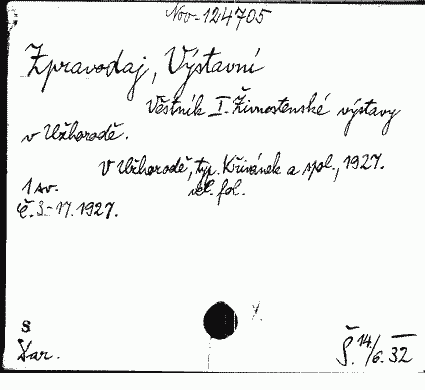 Nov-124705
Zpravodaj, Výstavní
Věstník I. Živnostenské výstavy
v Užhorodě.
V Užhorodě, typ. Křivánek a spol., 1927.
1 sv. vel. fol.
Č. 3-17. 1927.
s
Dar. Š. 14/6. 32